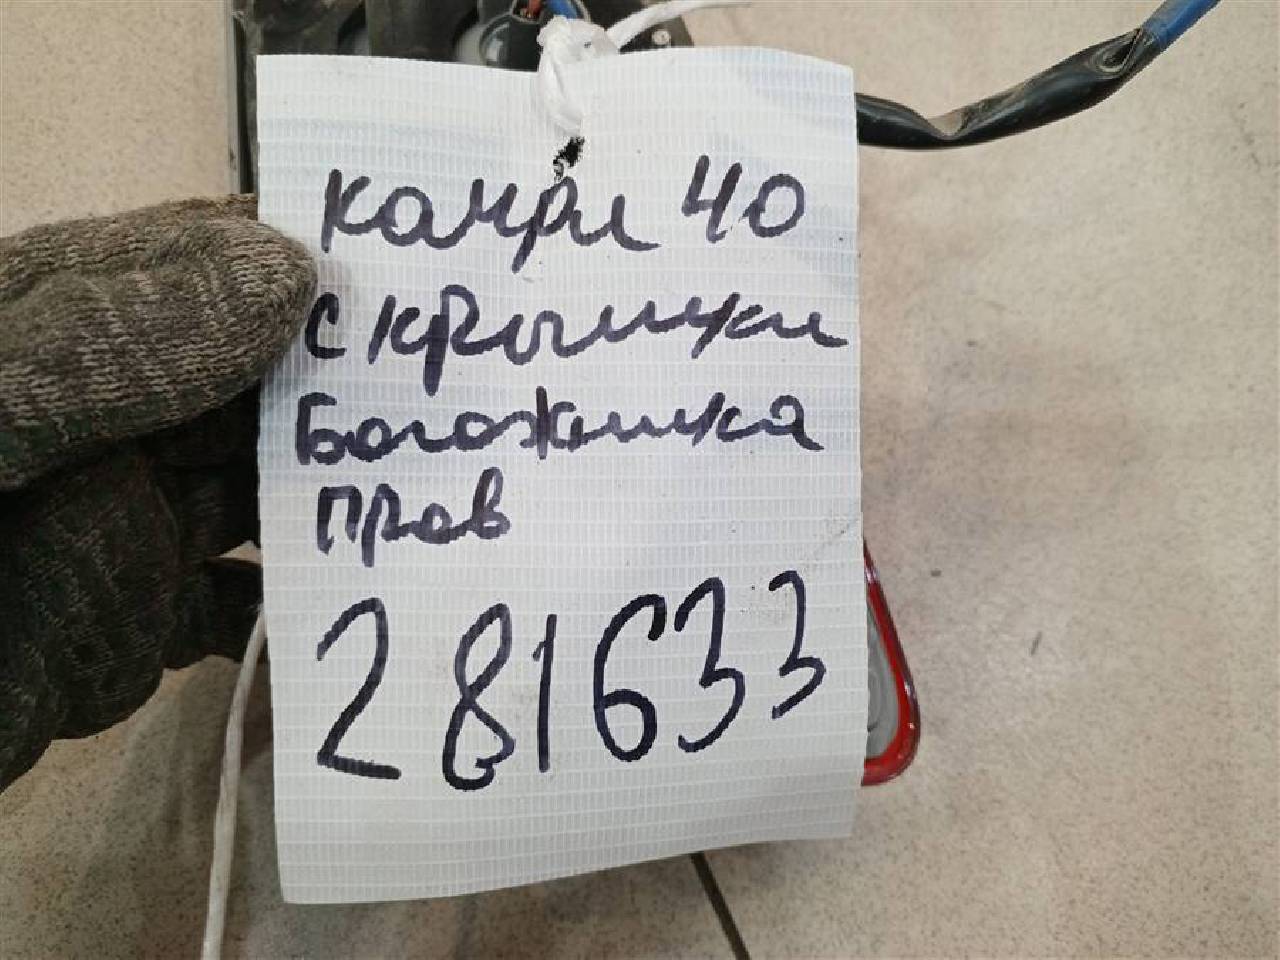 Камри 40
с крышки
Богожника
прав
281633